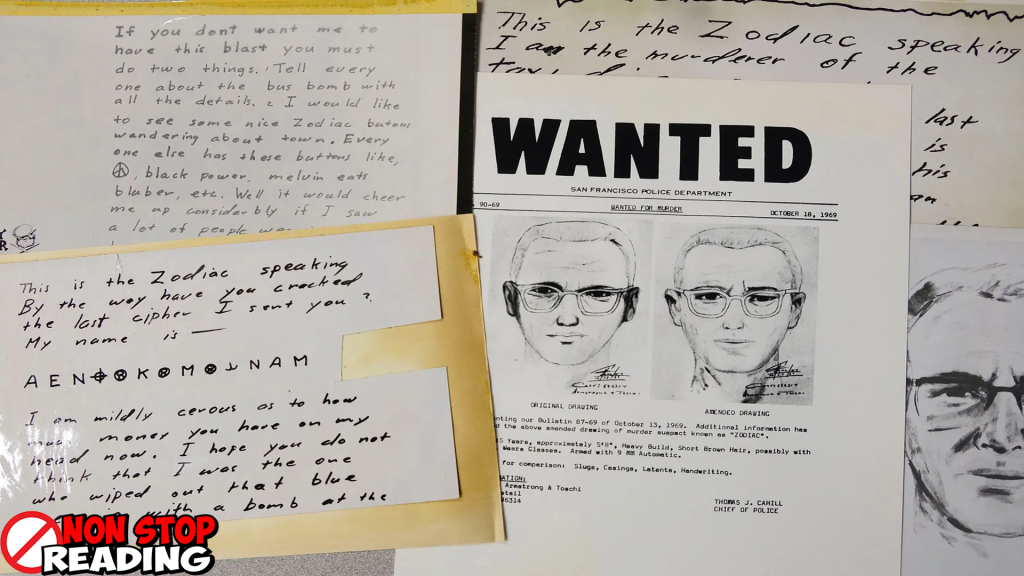 If you dont want me to
have this blast you must
do two things. Tell every
one about the bus bomb with
all the details. 2 I would like
to see some nice Zodiac butons
wandering about town. Every
one else has these buttons like,
black power, melvin eats
bluber, etc. Well it would cheer
me up considerbly if I saw
a lot of people
This is the Zodiac speaking
By the way have you cracked
the last cipher I sent you ?
My name is —
A E N ⌖ ⊗ K ⊗ M ⊗ ⅃ N A M
I am mildly cerous as to how
much money you have on my
head now. I hope you do not
think that I was the one
who wiped out that blue
with a bomb at the
This is the Zodiac speaking
I am the murderer of the
last
is
his
WANTED
SAN FRANCISCO POLICE DEPARTMENT
90-69 WANTED FOR MURDER OCTOBER 18, 1969
ORIGINAL DRAWING AMENDED DRAWING
nting our Bulletin 87-69 of October 13, 1969. Additional information has
d the above amended drawing of murder suspect known as "ZODIAC".
5 Years, approximately 5'8", Heavy Build, Short Brown Hair, possibly with
Wears Glasses. Armed with 9 MM Automatic.
for comparison: Slugs, Casings, Latents, Handwriting.
ATION:
Armstrong & Toschi
etail
96314
THOMAS J. CAHILL
CHIEF OF POLICE
NON STOP
READING